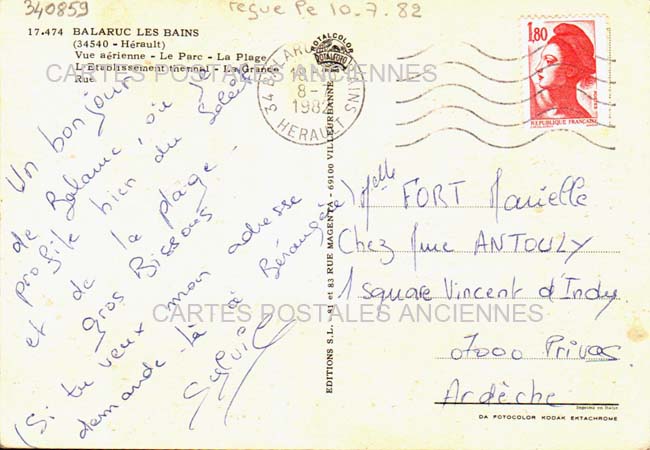 340859
reçue le 10.7.82
17.474 BALARUC LES BAINS
(34540 - Hérault)
Vue aérienne - Le Parc - La Plage
L'Etablissement thermal - La Grande
Rue
CARTES POSTALES ANCIENNES
FOTOCOLOR
34 BALARUC LES BAINS
8-7
1982
HERAULT
1,80
REPUBLIQUE FRANÇAISE
Un bonjour
de Balaruc, où je
profite bien du Soleil
et de la plage.
Gros Bissous
(Si tu veux mon adresse
demande-là à Bérangère)
Sylvie
EDITIONS S.L. - 81 et 83 RUE MAGENTA - 69100 VILLEURBANNE
Melle FORT Marielle
Chez Mme ANTOULY
1 square Vincent d'Indy
07000 Privas
Ardèche
CARTES POSTALES ANCIENNES
Imprimé en Italie
DA FOTOCOLOR KODAK EKTACHROME